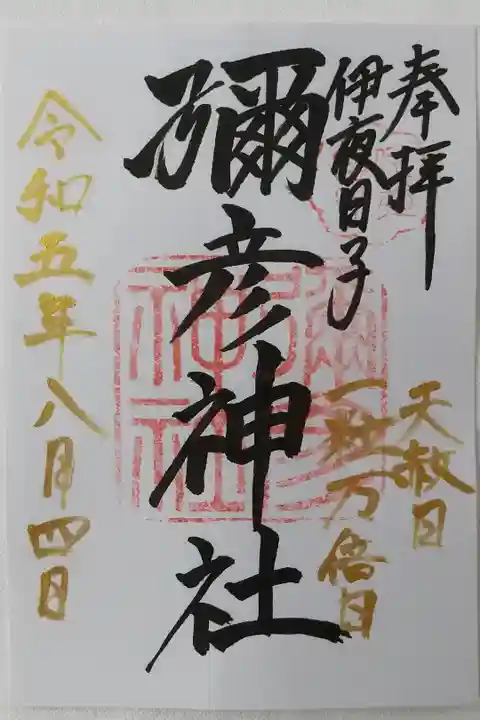 奉拝
伊夜日子
彌彦神社
天赦日
一粒万倍日
令和五年八月四日